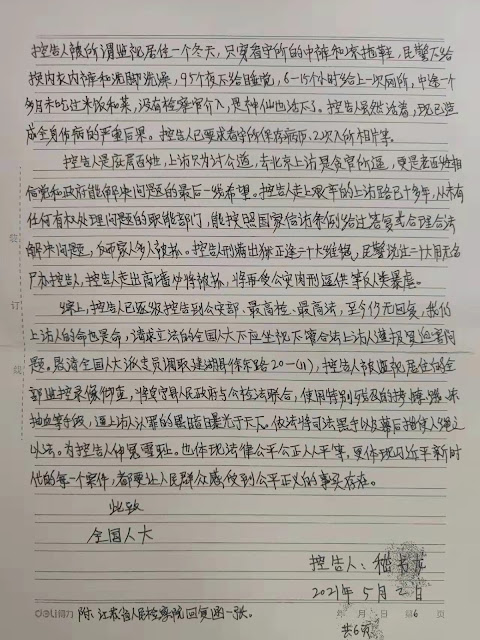 控告人被所谓监视居住一个冬天，只穿看守所的中裤和凉拖鞋，民警不给
换内衣内裤和洗脚洗澡，95个夜不给睡觉，6-15个小时给上一次厕所，中途一个
多月未吃过米饭和菜，没有检察官介入，是神仙也活不了。控告人虽然活着，现已造
成全身伤病的严重后果。控告人已要求看守所保存病历、2次入所相片等。
控告人是底层百姓，上访只为讨公道，去北京上访是贪官所逼，更是老百姓相
信党和政府能解决问题的最后一线希望。控告人走上艰辛的上访路已十多年，从未有
任何有权处理问题的职能部门，能按照国家信访条例给过答复或合理合法
解决问题，反而家人多人被抓。控告人刑满出狱正逢二十大维稳，民警说过二十大用无名
尸办控告人，控告人走出高墙必将被抓，将再受公安肉刑逼供等的人类暴虐。
综上，控告人已逐级控告到公安部、最高检、最高法，至今仍无回复，我们
上访人的命也是命，请求立法的全国人大不应坐视不管合法上访人遭报复迫害问
题。恳请全国人大派定员调取建湖县徐东路20-(11)，控告人被监视居住的全
部监控录像彻查，将阜宁县人民政府与公检法联合，使用特别残忍的拷、绑、强、昧
抽血等手段，逼上访人认罪的黑暗日曝光于天下。依法将司法黑手以及幕后指使人绳之
以法。为控告人伸冤雪耻。也体现法律公平公正人人平等，更体现习近平新时
代的每一个案件，都要让人民群众感受到公平正义的事实存在。
此致
全国人大
控告人：
2021年5月2日
装
订
线
deli得力
年 月 日 第6页
附：江苏省人民检察院回复图一张。
共6页